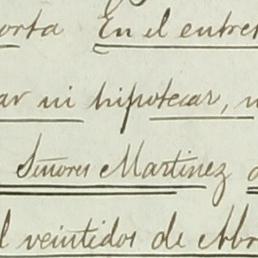 orta En el entre
ar ni hipotecar, n
Señores Martinez d
l veintidos de Abr